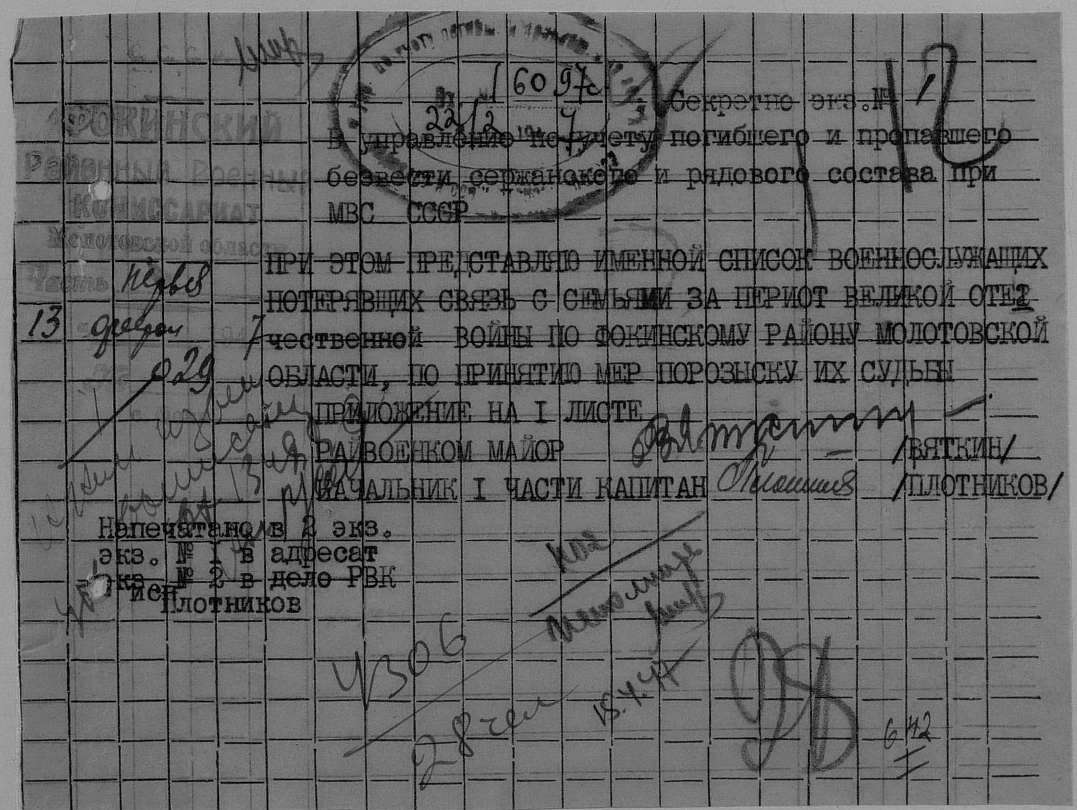 16097с
22/2 1947
Секретно экз.№ 1
ФОКИНСКИЙ
Районный Военный
КОМИССАРИАТ
Молотовской области
Часть первая
13 февраля 7
029
В управление по учету погибшего и пропавшего
безвести сержанского и рядового состава при
МВС СССР
ПРИ ЭТОМ ПРЕДСТАВЛЯЮ ИМЕННОЙ СПИСОК ВОЕННОСЛУЖАЩИХ
ПОТЕРЯВЩИХ СВЯЗЬ С СЕМЬЯМИ ЗА ПЕРИОТ ВЕЛИКОЙ ОТЕ
чественной ВОЙНЫ ПО ФОКИНСКОМУ РАЙОНУ МОЛОТОВСКОЙ
ОБЛАСТИ, ПО ПРИНЯТИЮ МЕР ПОРОЗЫСКУ ИХ СУДЬБЫ
ПРИЛОЖЕНИЕ НА I ЛИСТЕ
РАЙВОЕНКОМ МАЙОР /ВЯТКИН/
НАЧАЛЬНИК I ЧАСТИ КАПИТАН /ПЛОТНИКОВ/
Напечатано в 2 экз.
экз. № I в адресат
экз. № 2 в дело РВК
исп
Плотников
4306
28 чел
18.4.47
642